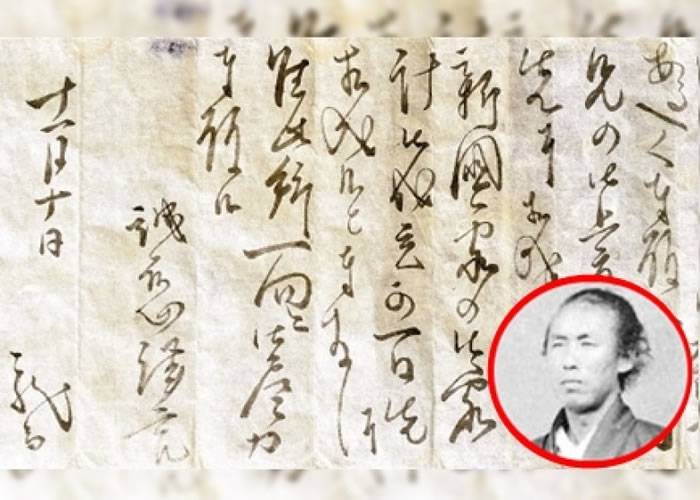 奉願
兄の御上京
先ニ相成
新國家の御家
計御成立が一日先
相成候と奉存
唯此所一向ニ御尽力
奉願候
誠恐謹言
十一月十日
龍馬